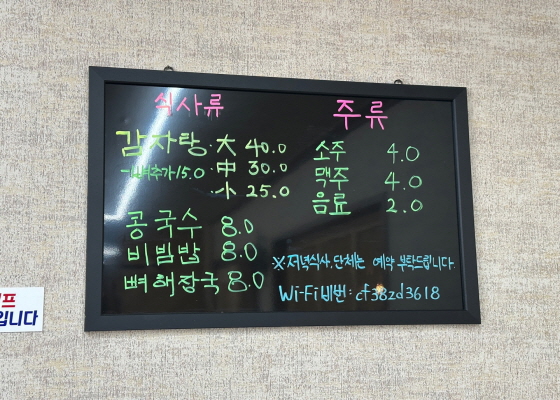 식사류
감자탕 · 大 40.0
-뼈추가 15.0 · 中 30.0
· 小 25.0
콩국수 8.0
비빔밥 8.0
뼈해장국 8.0
주류
소주 4.0
맥주 4.0
음료 2.0
※저녁식사, 단체는 예약 부탁드립니다.
Wi-Fi 비번: cf38zd3618
입니다